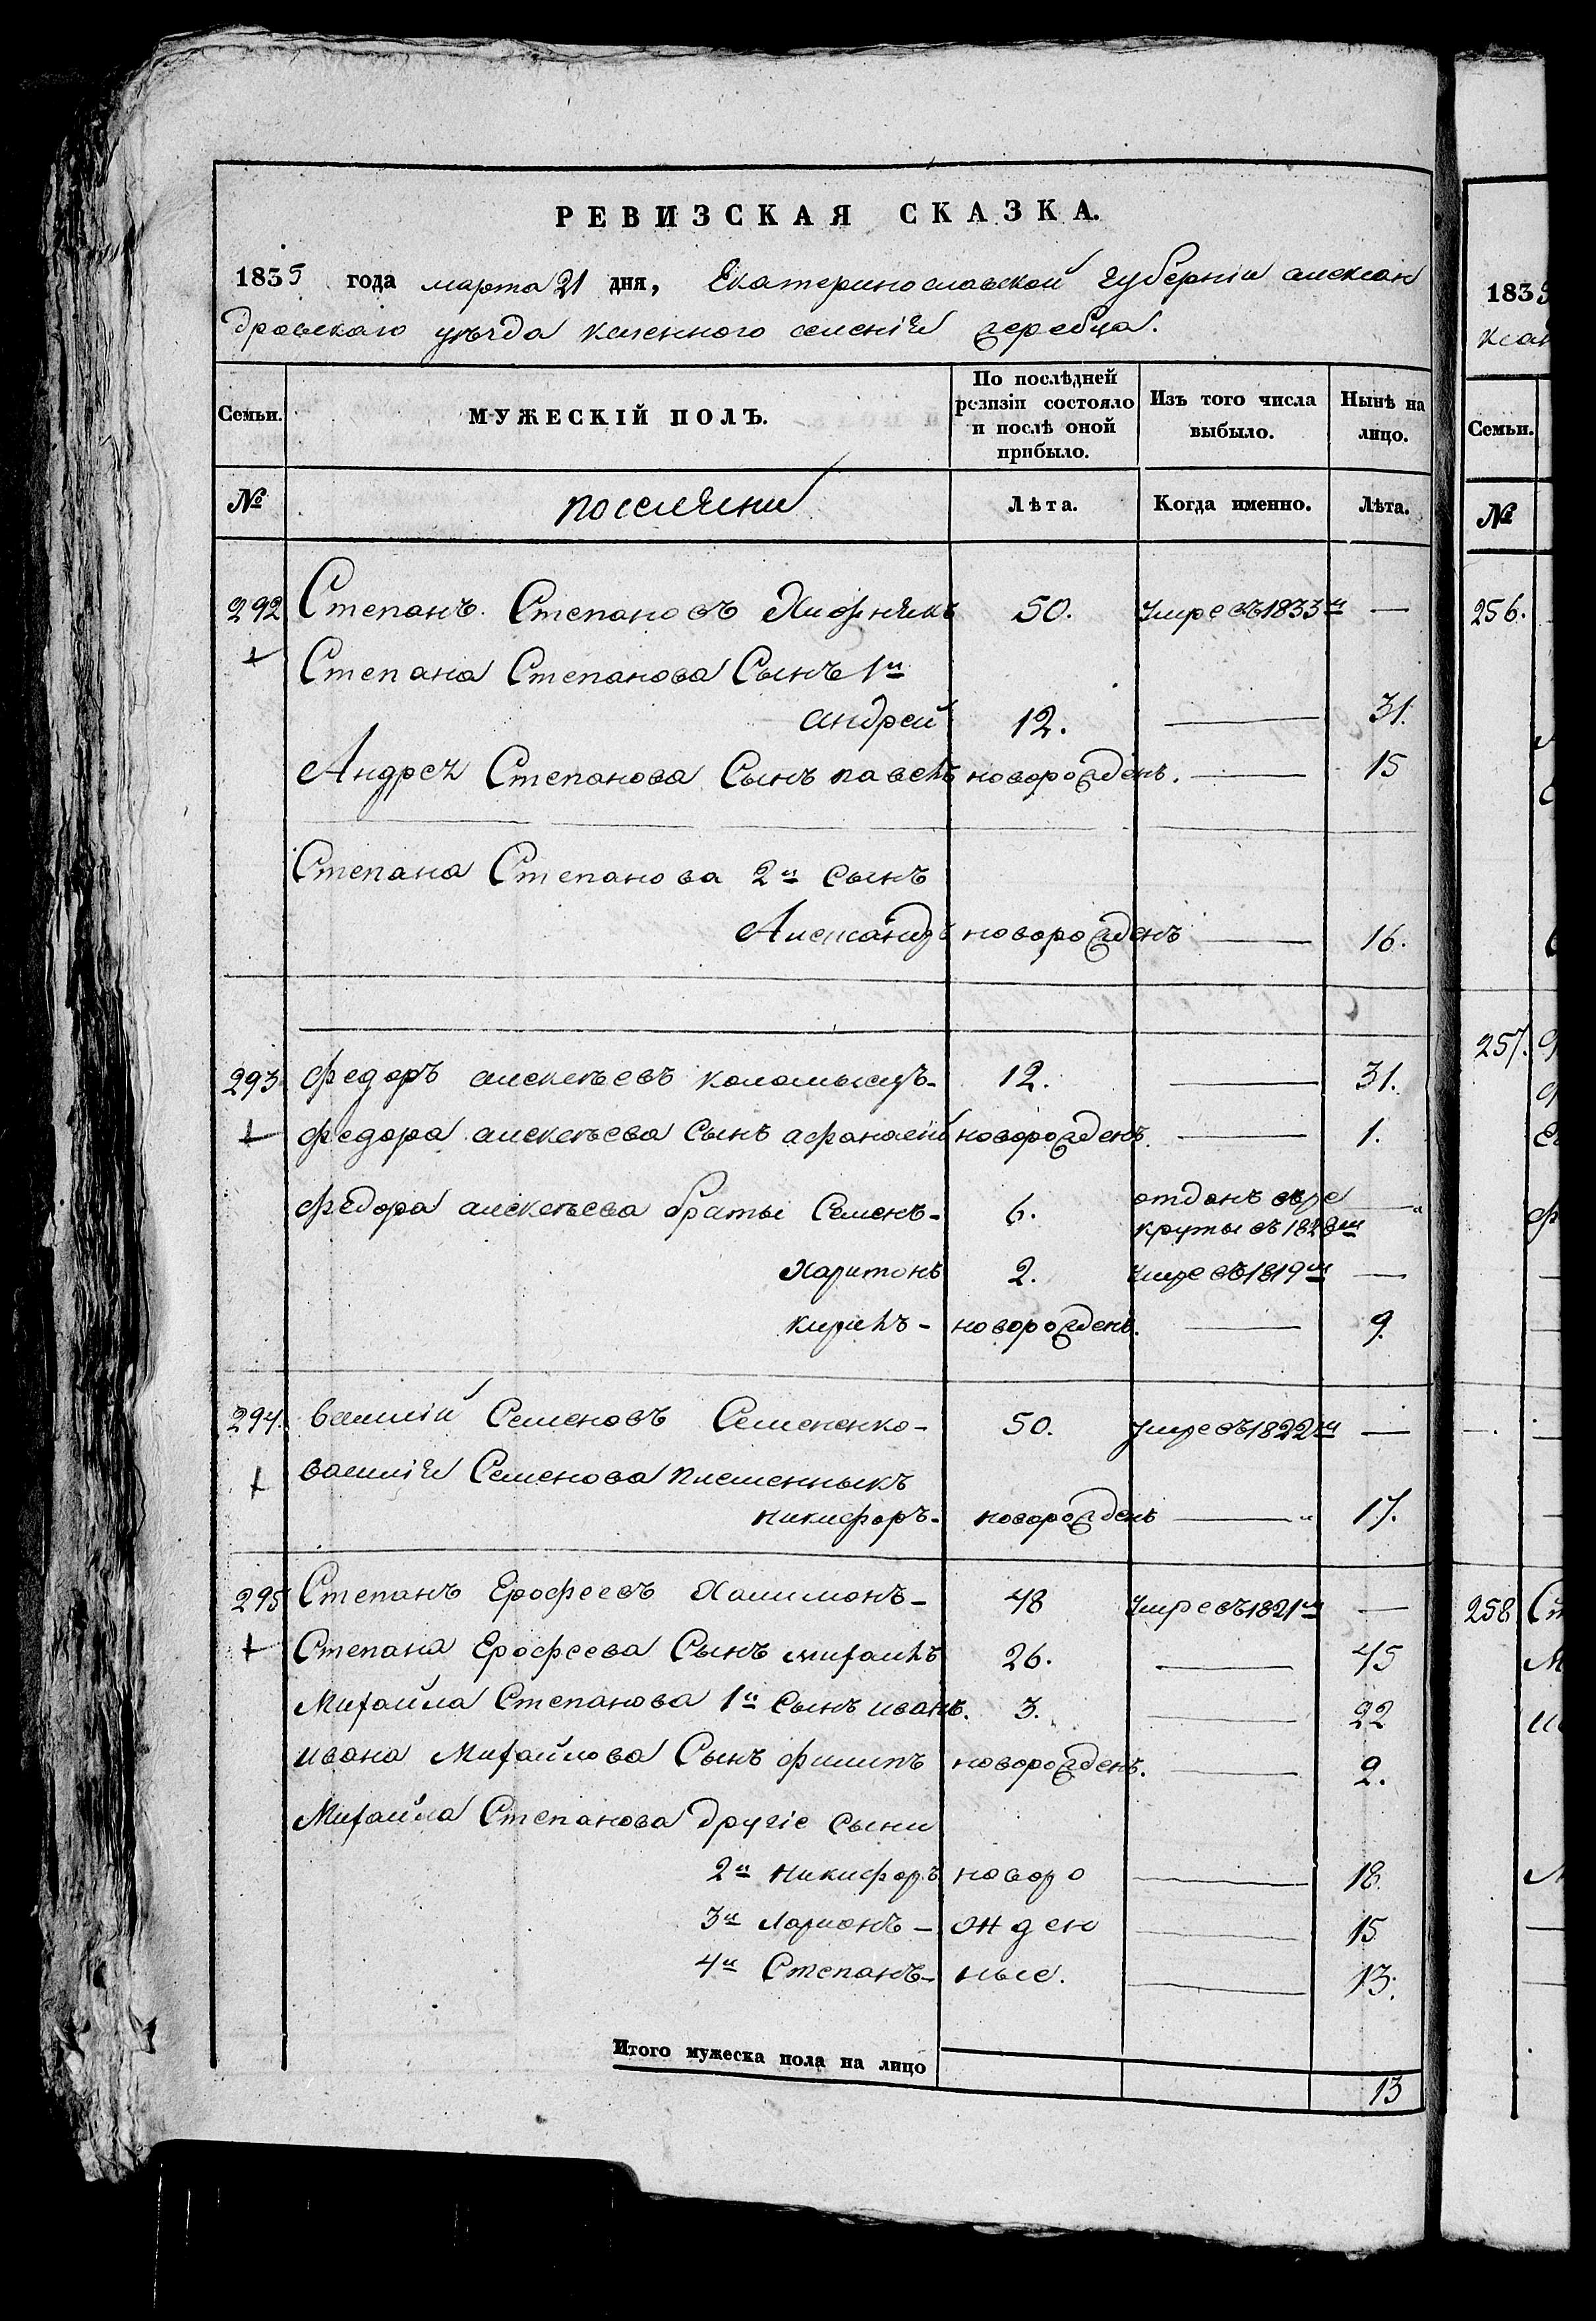 РЕВИЗСКАЯ СКАЗКА.
1835 года марта 21 дня, Екатеринославской губерніи алексан
дровскаго уѣзда казенного селенія жеребца.
Семьи. МУЖЕСКІЙ ПОЛЪ. По послѣдней ревизіи состояло и послѣ оной прибыло. Изъ того числа выбыло. Нынѣ на лицо.
№ поселяни Лѣта. Когда именно. Лѣта.
292 Степанъ Степановъ 50. Умре въ 1833м —
Степана Степанова Сынъ 1й
андрей 12. — 31.
Андрея Степанова Сынъ павелъ новорожденъ. — 15
Степана Степанова 2й сынъ
Александръ новорожденъ — 16.
293 федоръ алексѣевъ коломыецъ 12. — 31.
федора алексѣева Сынъ афанасий новорожденъ. — 1.
федора алексѣева братьи Семенъ 6. отданъ въ ре
круты въ 1828м —
Харитонъ 2. Умре въ 1819м —
кирилъ новорожденъ. — 9.
294. василій Семеновъ Семененко 50. Умре въ 1822м —
василія Семенова племенныкъ
никифоръ новорожденъ — 17.
295 Степанъ Ерофеевъ Халимонъ 48 Умре въ 1821м —
Степана Ерофеева Сынъ михаилъ 26. — 45
Михаила Степанова 1й сынъ иванъ. 3. — 22
ивана Михайлова Сынъ филипъ новорожденъ. — 2.
Михаила Степанова другіе сыни
2й никифоръ новоро — 18.
3й Ларионъ жден — 15
4й Степанъ ные. — 13.
Итого мужеска пола на лицо 13
1835
ксан
Семьи.
№
256.
257.
258